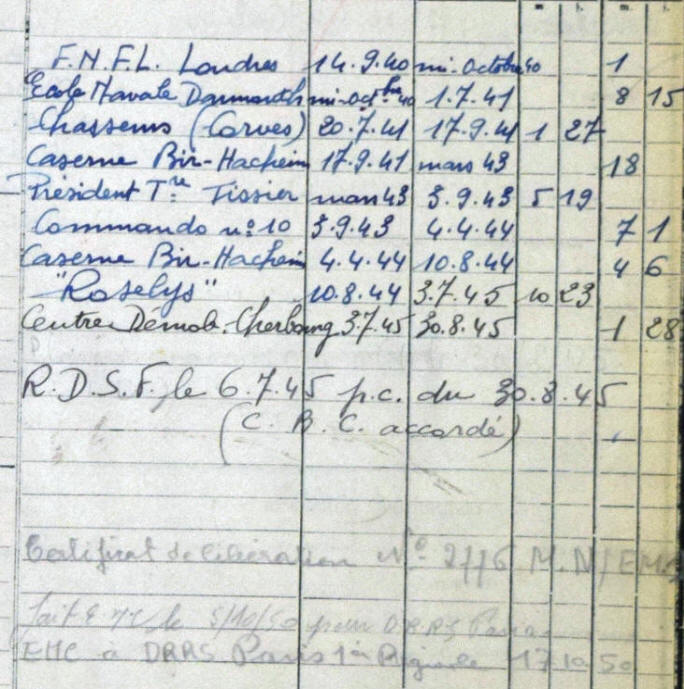 m. j. m. j.
F.N.F.L. Londres 14.9.40 mi-Octobre 40 1
Ecole Navale Darmouth mi-octbre 40 1.7.41 8 15
Chasseurs (Corves) 20.7.41 17.9.41 1 27
Caserne Bir-Hacheim 17.9.41 mars 43 18
Président Tre Tissier mars 43 3.9.43 5 19
Commando nº 10 3.9.43 4.4.44 7 1
Caserne Bir-Hacheim 4.4.44 10.8.44 4 6
"Roselys" 10.8.44 3.7.45 10 23
Centre Démob. Cherbourg 3.7.45 30.8.45 1 28
R.D.S.F. le 6.7.45 p.c. du 30.8.45
(C. B. C. accordé)
Certificat de libération Nº 2116 M.N/EMG
le 5/10/50 pour DRRS Paris
EMC à DRRS Paris 1ère Région le 17 10 50